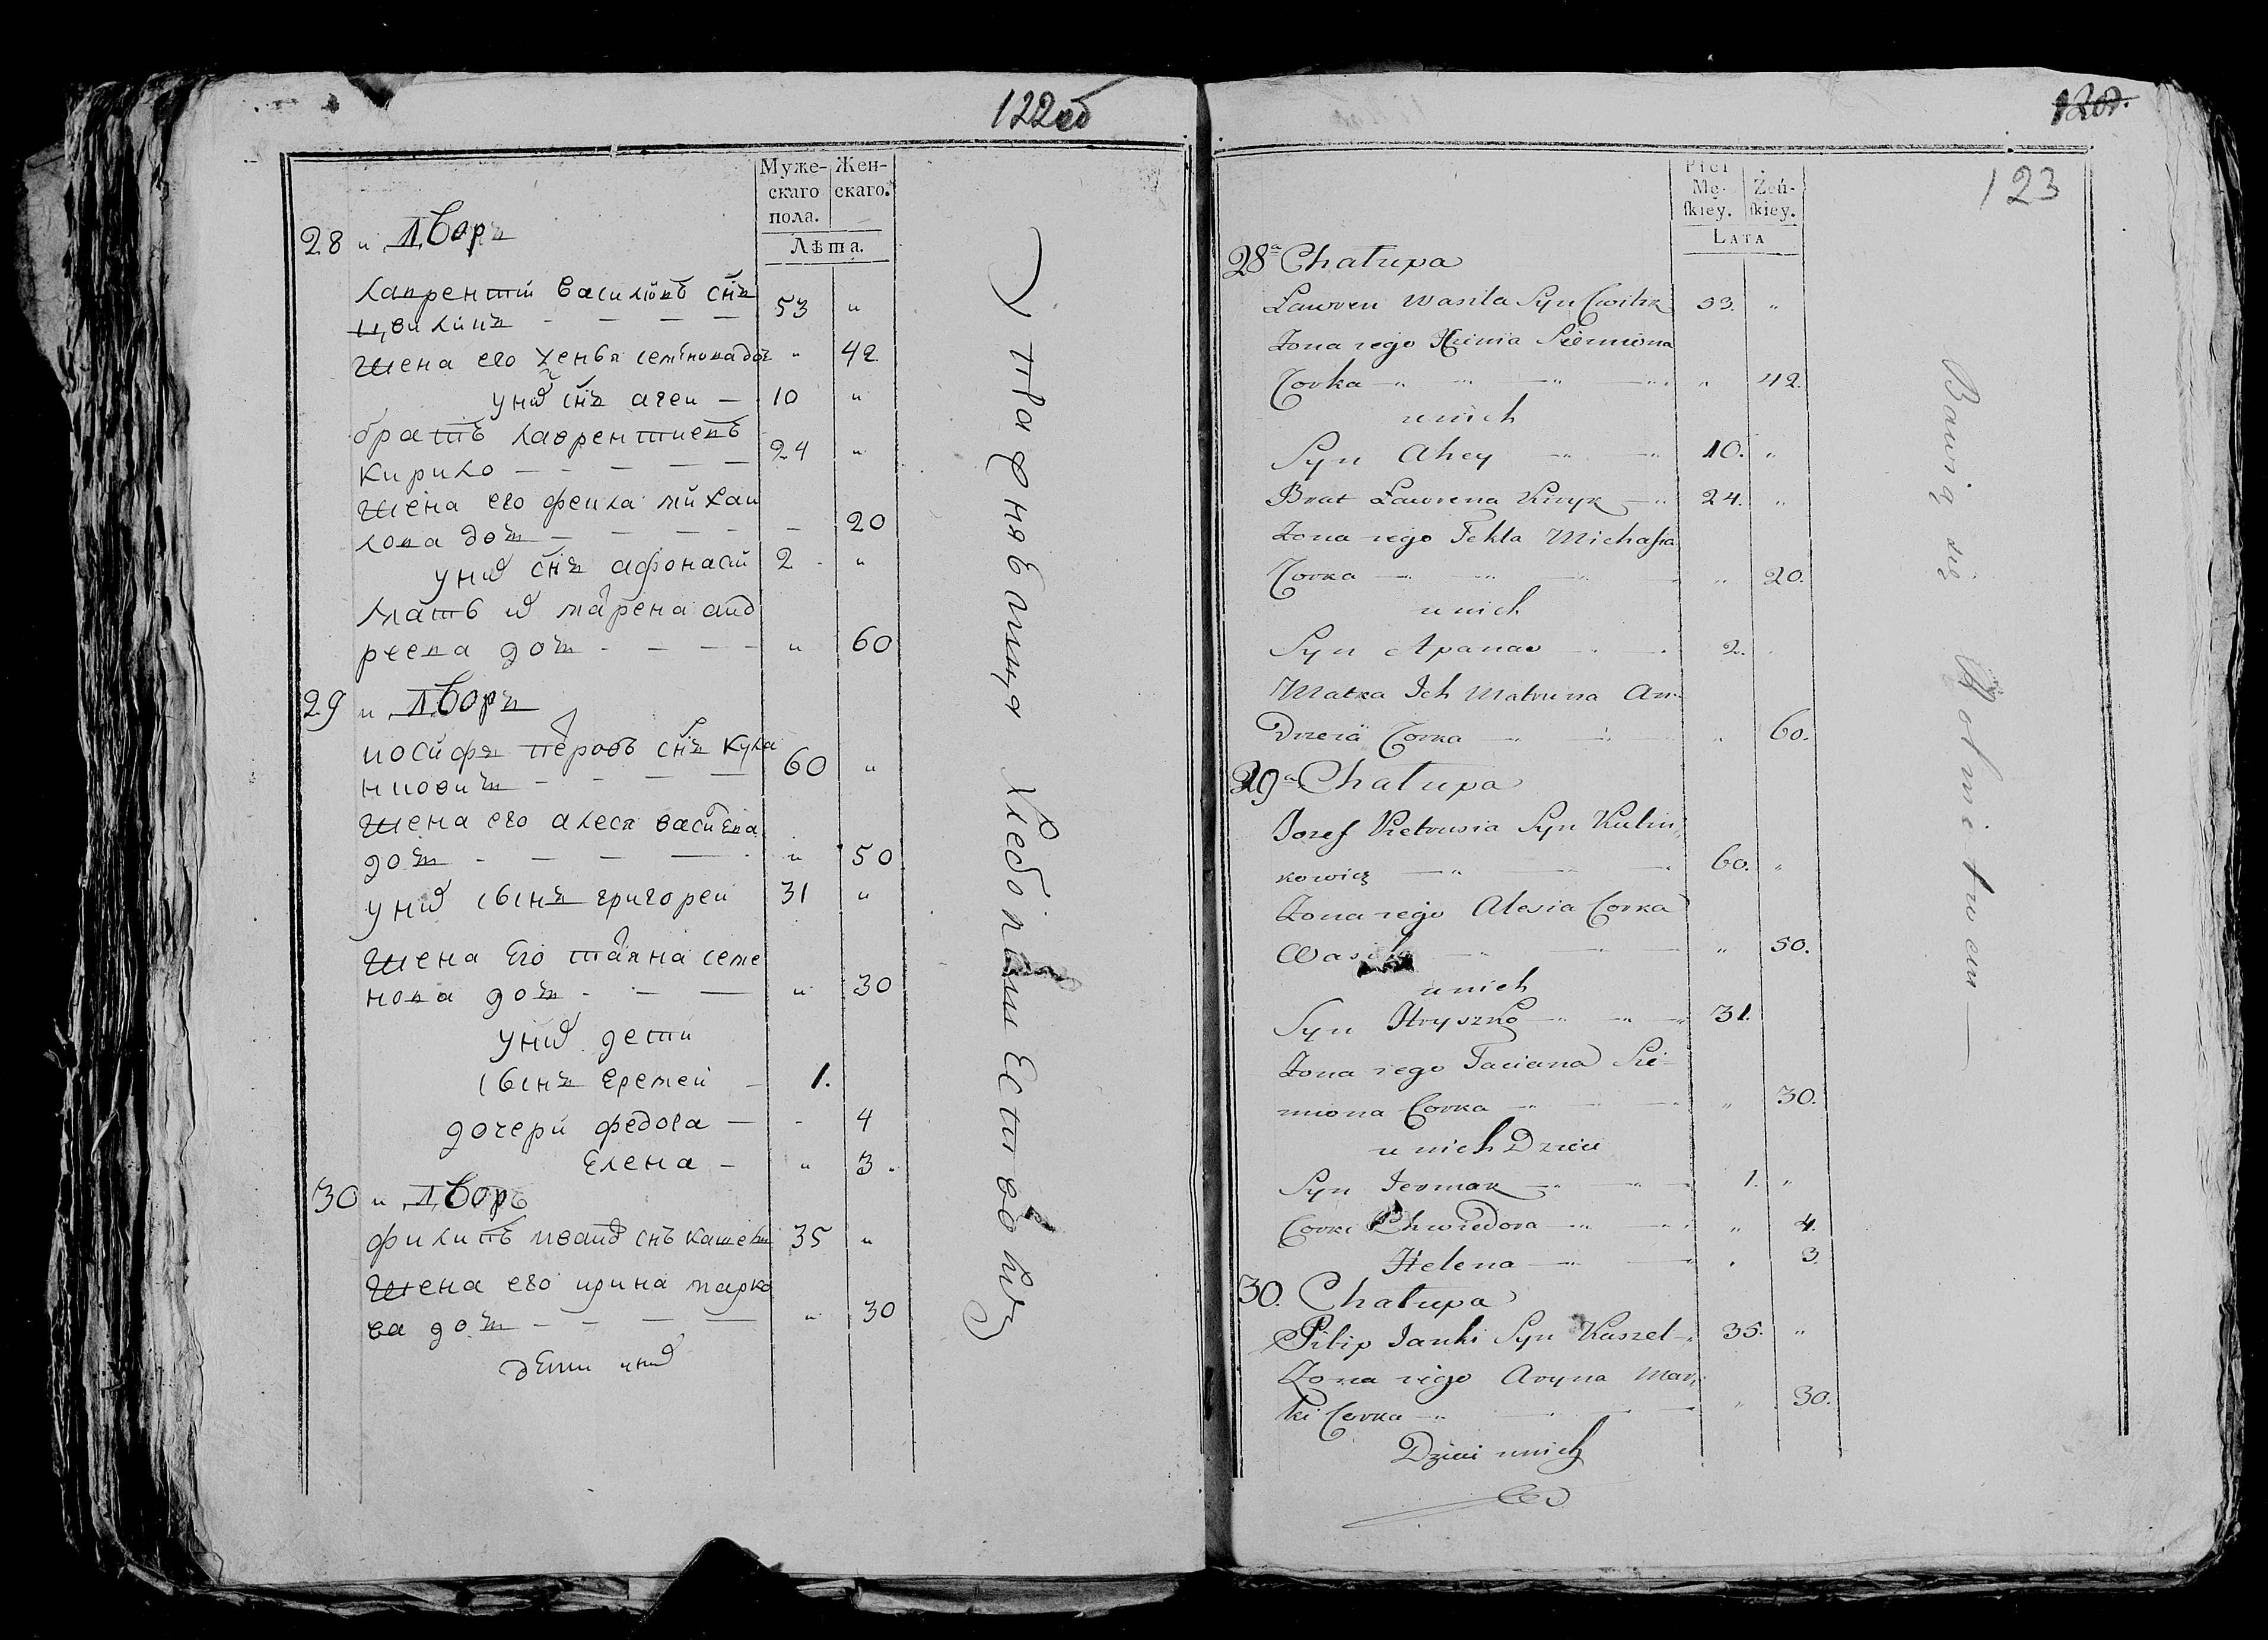 122об
Муже-
скаго
пола.
Жен-
скаго.
Лѣта.
28 и Дворъ
Лаврентий Васильевъ снъ
Цвилинъ — — — — 53 "
Жена его Хенья Семенова доч " 42
у них снъ Агеи — 10 "
братъ Лаврентиевъ
Кирило — — — — — 24 "
Жена его Фекла Михаи
лова доч — — — — - 20
у них снъ Афонасий 2 "
Мать их Марена Анд
реева доч - — — — " 60
29 и Дворъ
Иосифъ Петровъ снъ Кули
нковичъ — — — — 60 "
Жена его Алеся Васильева
доч — — — — " 50
у них сынъ Григореи 31 "
Жена его Татяна Семе
нова доч — — — " 30
у них дети
сынъ Еремей — 1.
дочери Федося — - 4
Елена — " 3
30 и Дворъ
Филипъ Иванов снъ Кашель 35 "
Жена его Ирина Марко
ва доч — — — — " 30
дети у них
Упражняваища хлебопашествомъ
120.
123
Płci
Mę-
skiey.
Żeń-
skiey.
LATA
28a Chałupa
Lawren Wasila Syn Cwilik 53. "
Żona iego Xienia Siemiona
Corka — " 42.
u nich
Syn Ahey — 10. "
Brat Lawrena Kiryk — 24. "
Żona iego Tekla Michasia
Corka — " 20.
u nich
Syn Apanas — 2.
Matka Ich Matruna An-
drzeia Corka — " 60.
29a Chałupa
Jozef Pietrusia Syn Kulin-
kowicz — 60. "
Żona iego Alesia Corka
Wasila — " 50.
u nich
Syn Hryszko — 31.
Żona iego Taciana Sie-
miona Corka — " 30.
u nich Dzieci
Syn Jermak — 1. "
Corki Chwiedora — " 4.
Helena — " 3.
30. Chałupa
Pilip Janki Syn Kaszel — 35. "
Żona iego Aryna Mar-
ki Corka — " 30.
Dzieci u nich
Bawią się Rolnictwem —